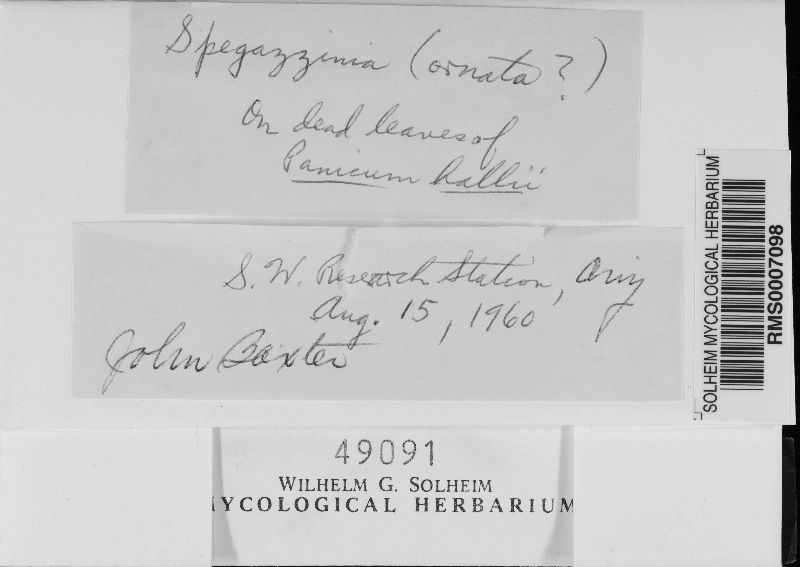 Spegazzinia (ornata?)
On dead leaves of
Panicum hallii
S. W. Research Station, Ariz
Aug. 15, 1960
John Baxter
SOLHEIM MYCOLOGICAL HERBARIUM
RMS0007098
49091
WILHELM G. SOLHEIM
MYCOLOGICAL HERBARIUM